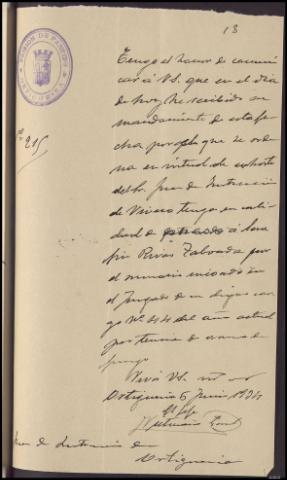 13
PRISIÓN DE PARTIDO
ORTIGUEIRA
215
Tengo el honor de comuni
car á VS. que en el dia
de hoy he recibido su
mandamiento de esta fe
cha por el que se orde
na en virtud de exhorto
del Sr. Juez de Instrucción
de Vivero tenga en cali
dad de
Rivas Taboada por
el sumario
el Juzgado de su digno car
go Nº 44 del año actual
por tenencia de arma de
fuego
Viva VS. m
Ortigueira 5 Junio 1934
El Jefe
Juez de Instrucción de
Ortigueira